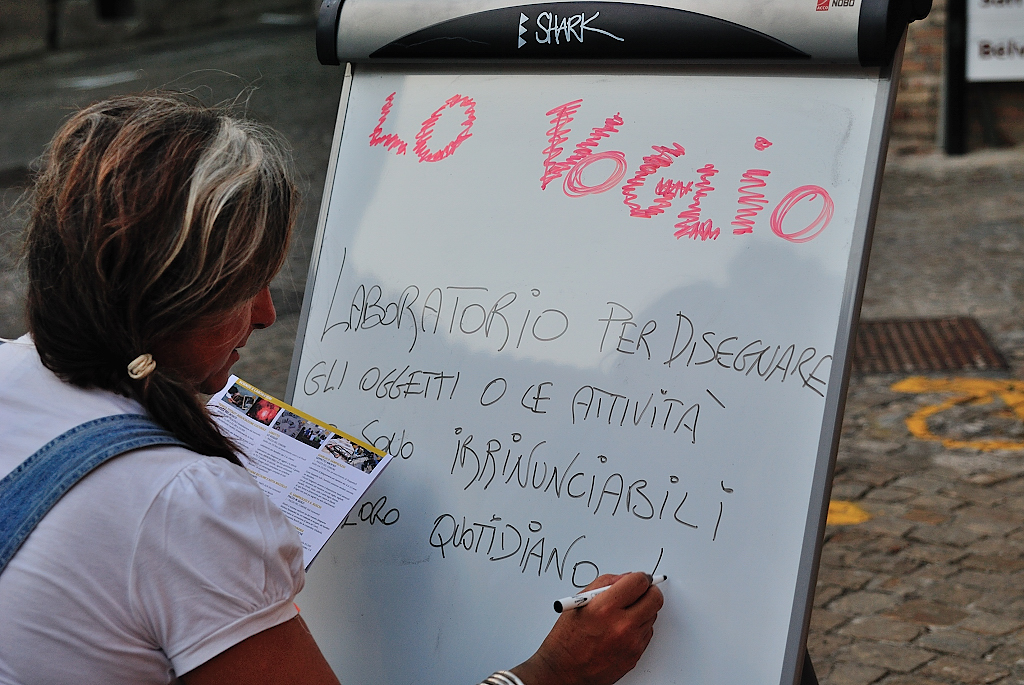 SHARK
ACCO NOBO
LO VOGLIO
LABORATORIO PER DISEGNARE
GLI OGGETTI O LE ATTIVITÀ
SONO IRRINUNCIABILI
LORO QUOTIDIANO !